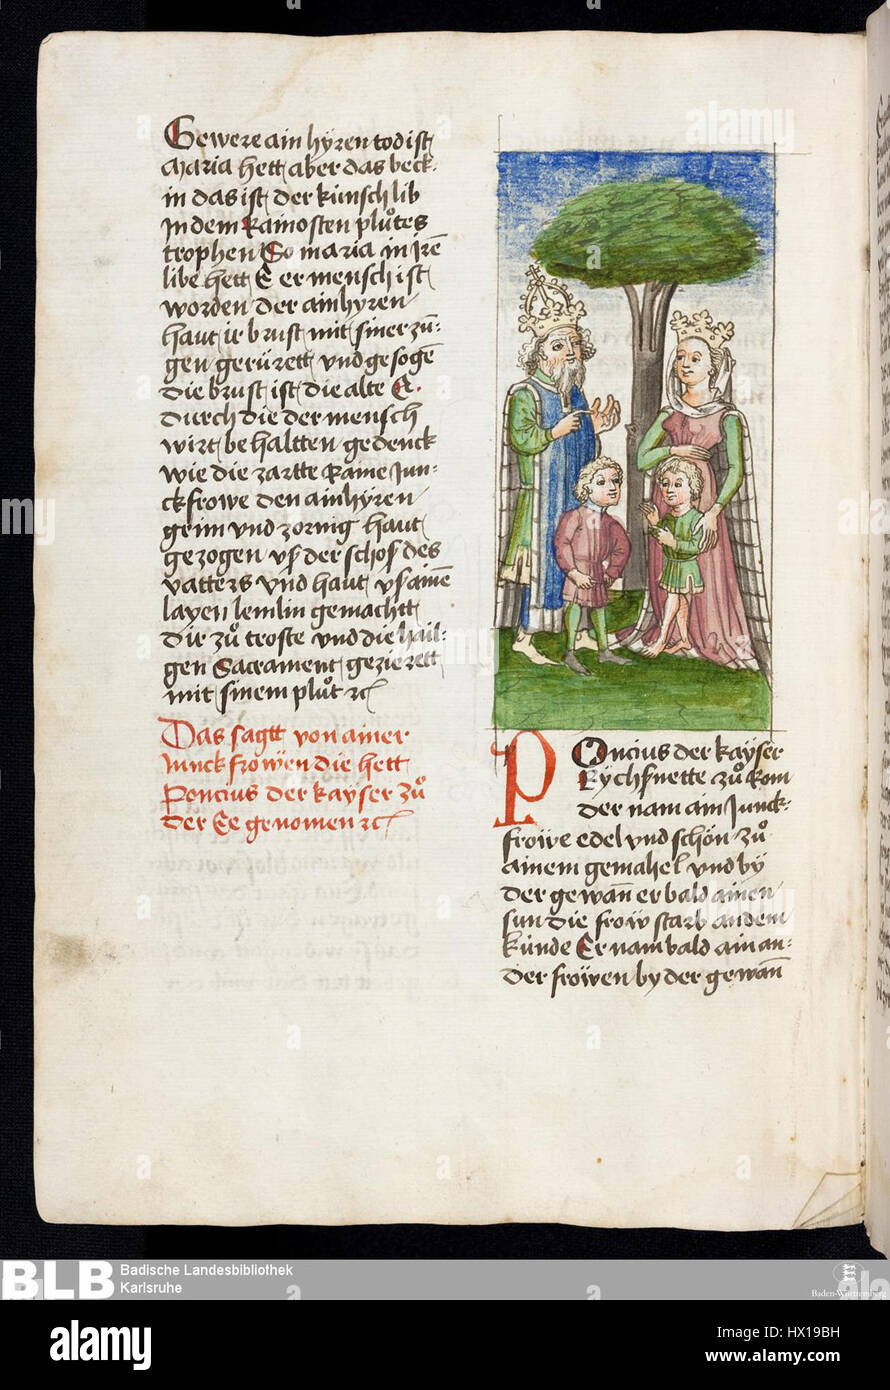 Gewere ain hÿren tod ist
Maria hett aber das beck-
in das ist der künsch lib
In dem Rainosten plůtes
trophen So maria in jrē
libe hett E er mensch ist
worden der ainhÿren
haut ir brust mit siner zū-
gen gerürett vnd gesogē
die brust ist die alte E.
durch die der mensch
wirt behaltten gedenck
wie die zartte Raine Jun-
ckfrowe den ainhÿren
grim vnd zornig haut
gezogen vſ der schos des
vatters vnd haut vſ ainē
layen lemlin gemachtt
dir zů troste vnd die hail-
gen Sacrament gezierett
mit sinem plůt ꝛc
Das sagtt von ainer
Junckfrowen die hett
Poncius der kaÿser zů
der Ee genomen ꝛc
POncius der kaÿser
Rÿchsnette zů Rom
der nam ain Junck-
frowe edel vnd schön zů
ainem gemahel vnd bÿ
der gewan̄ er bald ainen
sun die frow starb an dem
künde Er nam bald ain an-
der frowen by der gewan̄
BLB Badische Landesbibliothek
Karlsruhe
Baden-Württemberg
alamy
Image ID: HX19BH
www.alamy.com